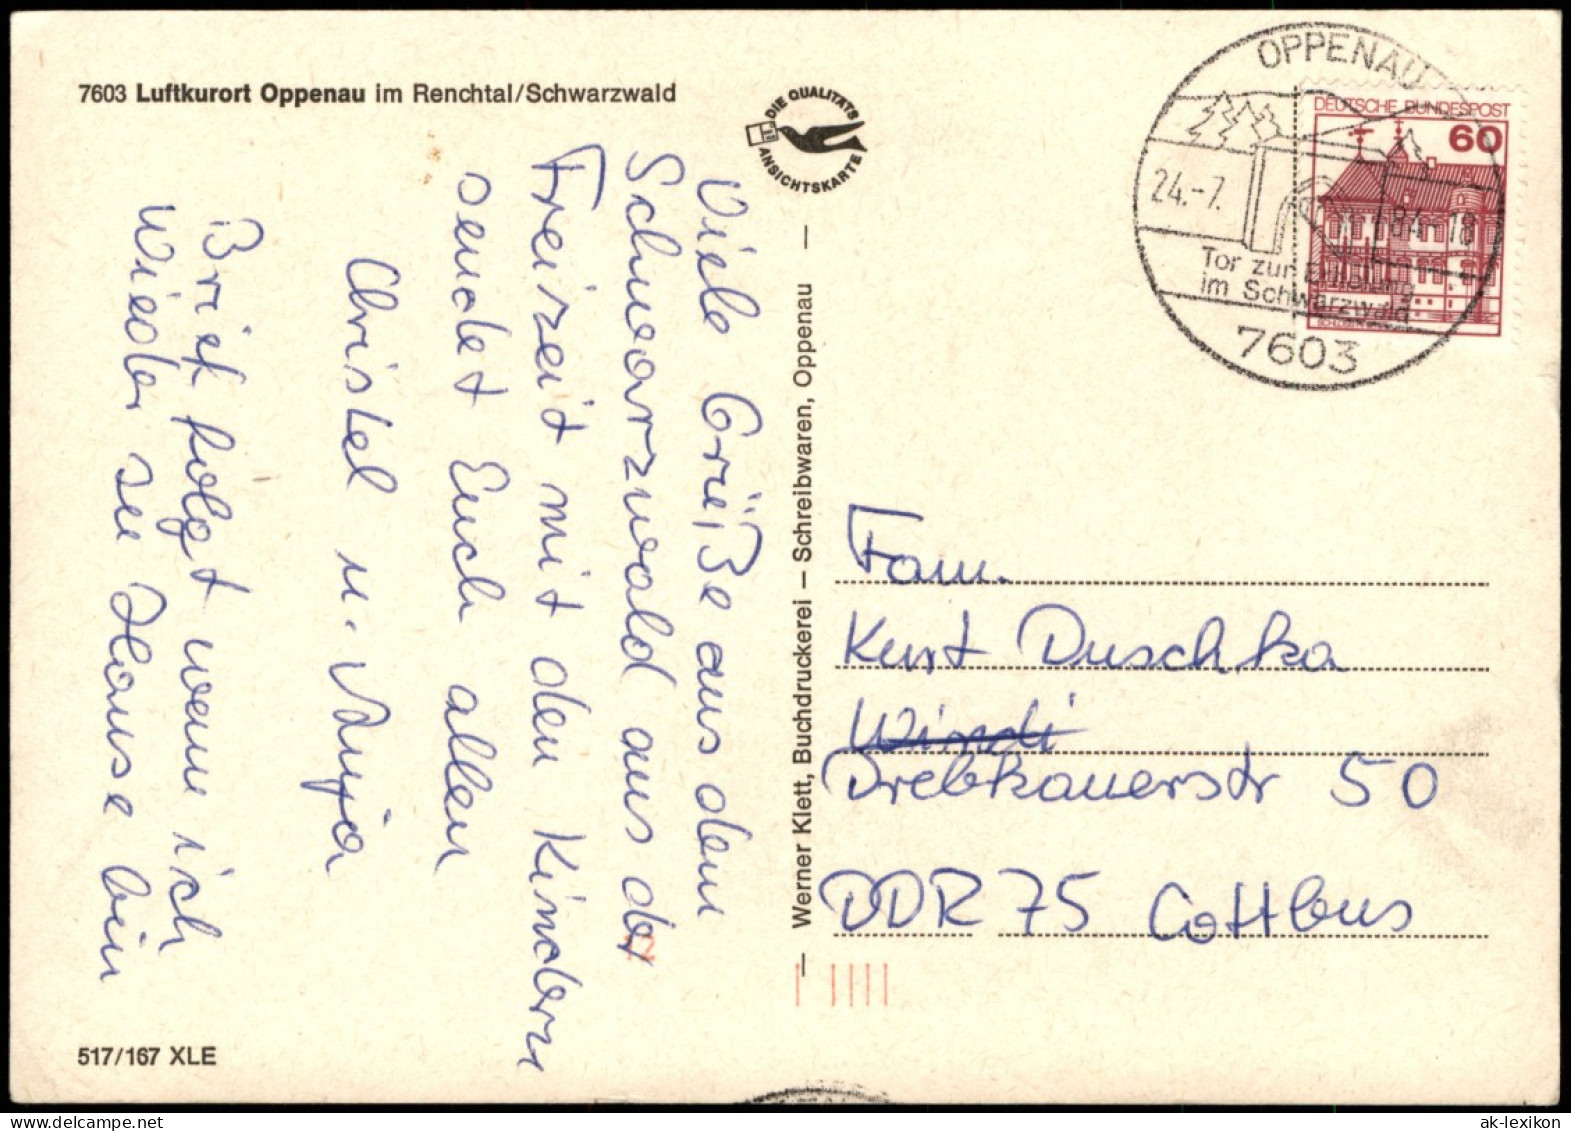 7603 Luftkurort Oppenau im Renchtal/Schwarzwald
DIE QUALITÄTS
ANSICHTSKARTE
OPPENAU
24.-7.
84-18
Tor zur Erholung
im Schwarzwald
7603
DEUTSCHE BUNDESPOST
60
Viele Grüße aus dem
Schwarzwald aus der
Freizeit mit den Kindern
sendet Euch allen
Christel u. Anja
Brief folgt wenn ich
wieder zu Hause bin
— Werner Klett, Buchdruckerei – Schreibwaren, Oppenau —
Fam.
Kurt Duschka
Drebkauerstr 50
DDR 75 Cottbus
517/167 XLE
ak-lexikon